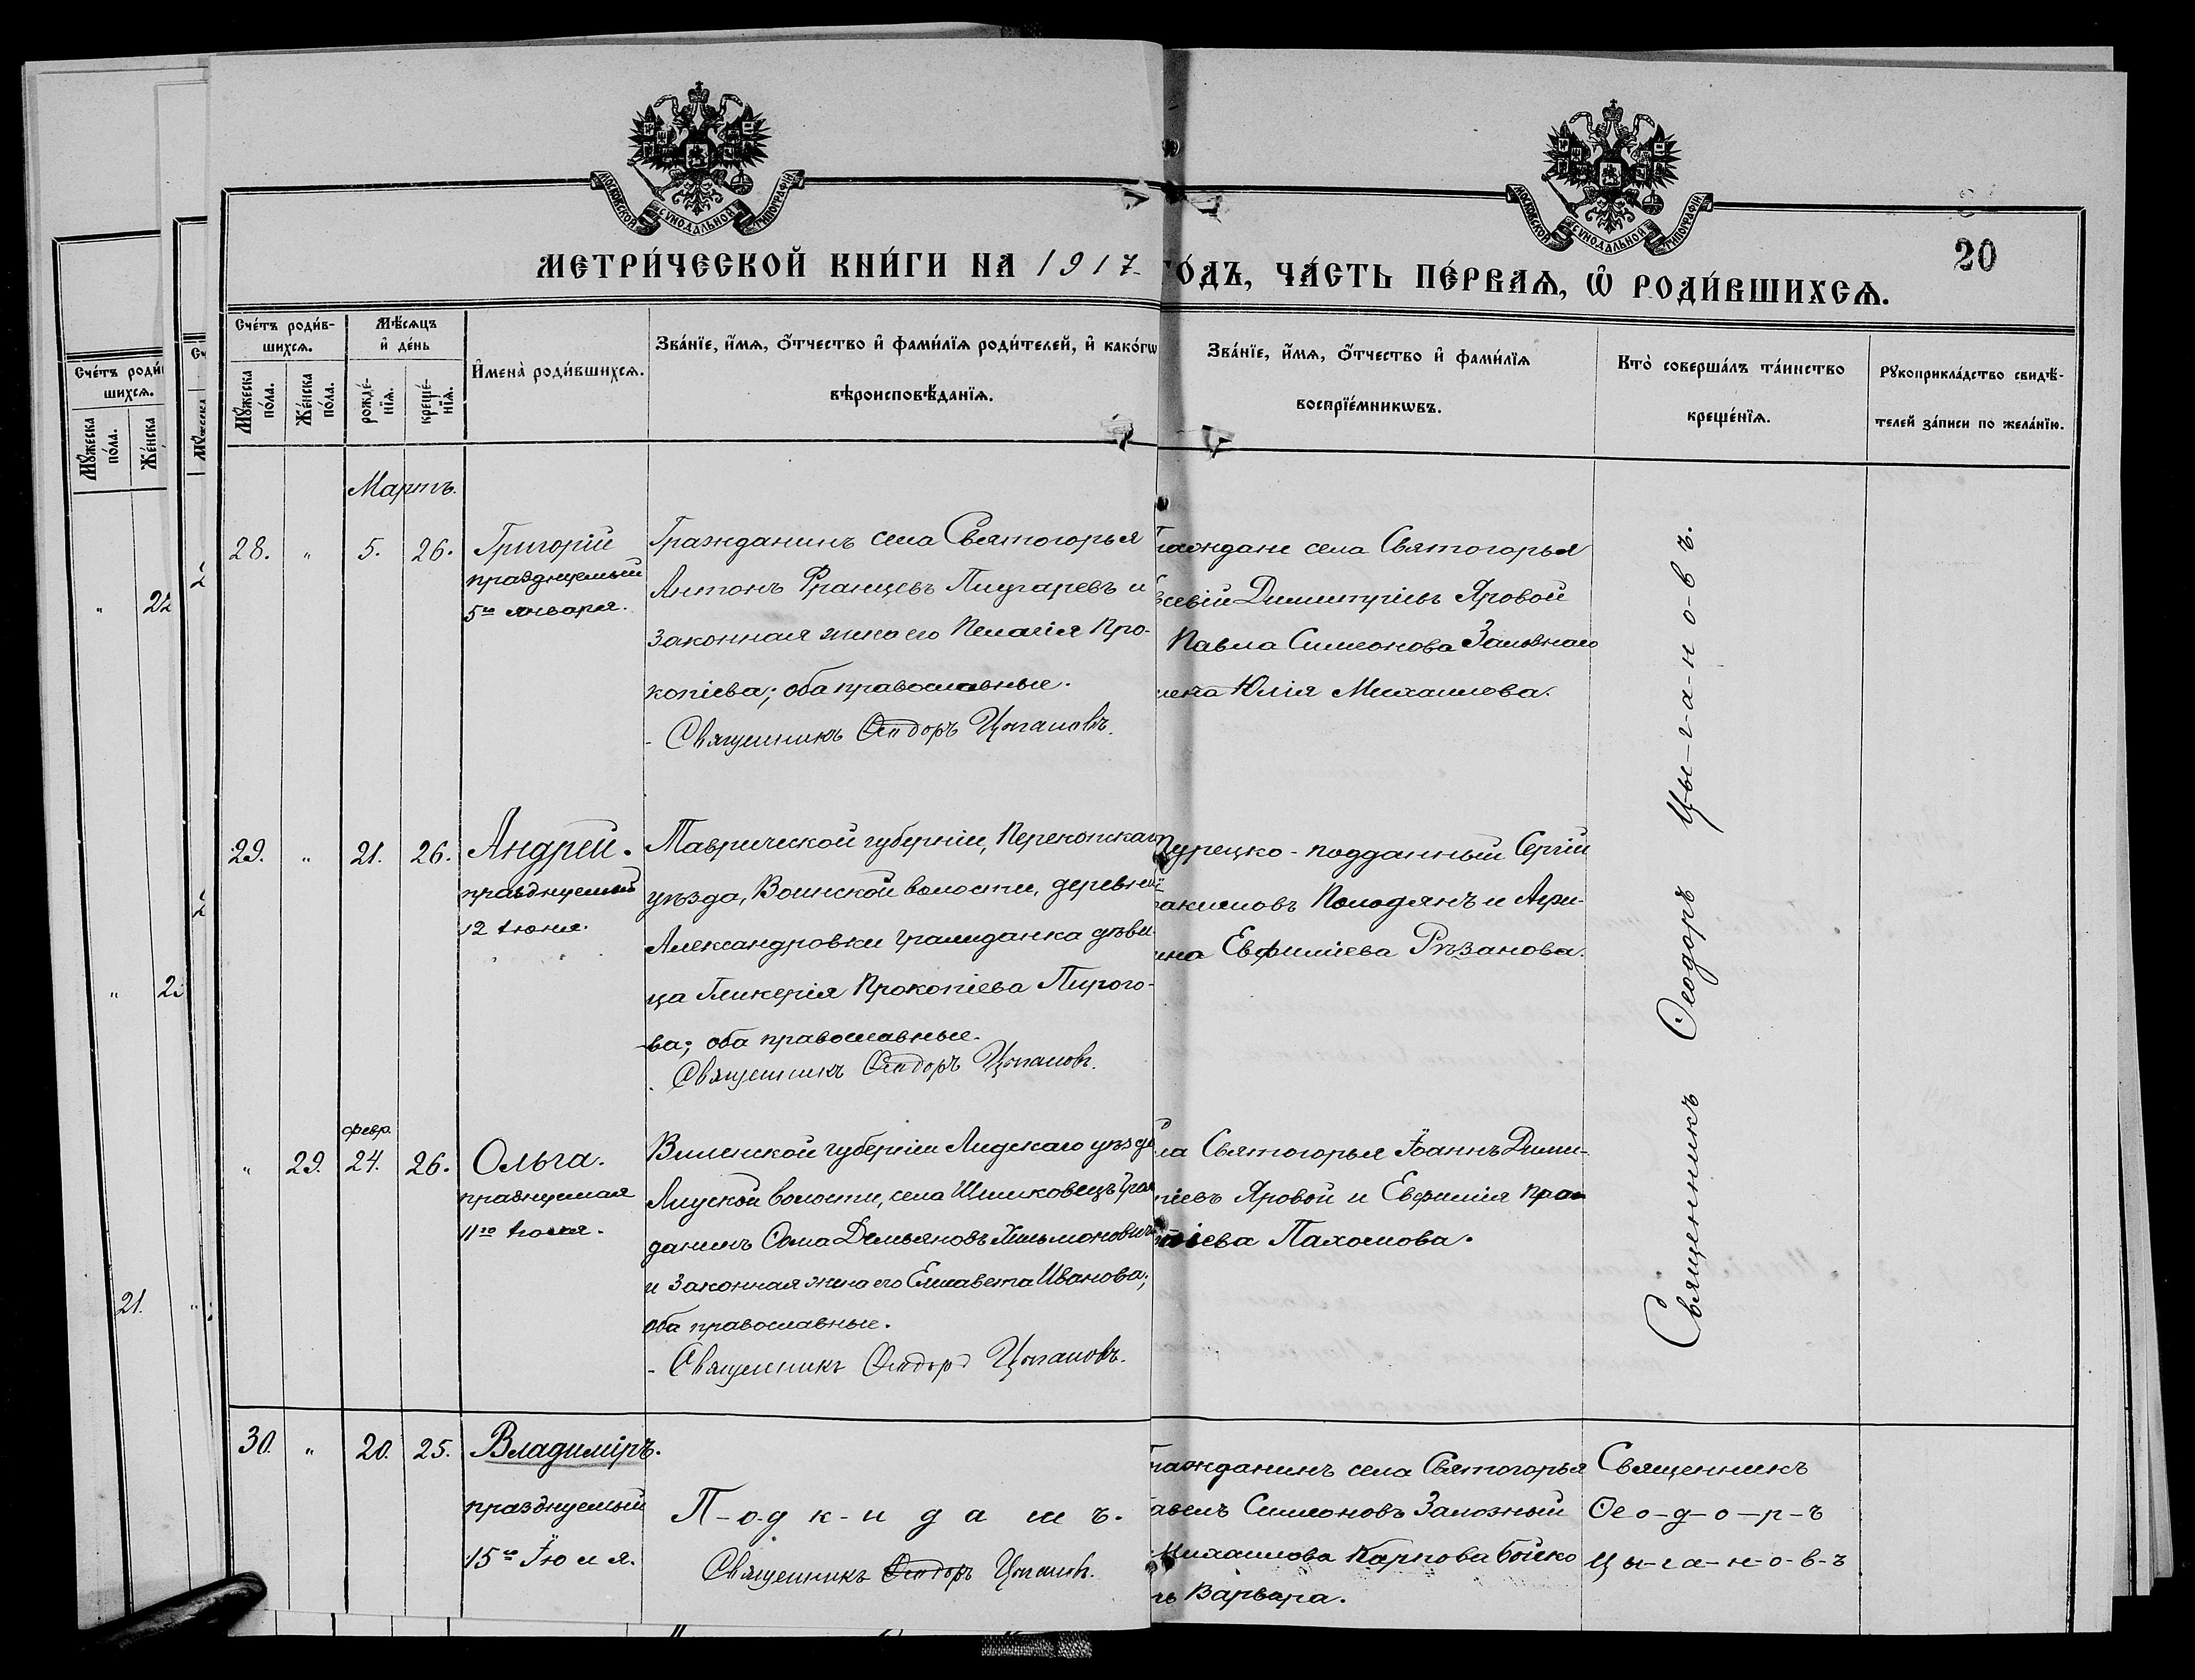 МОСКОВСКОЙ СѴНОДАЛЬНОЙ ТИПОГРАФІИ
МОСКОВСКОЙ СѴНОДАЛЬНОЙ ТИПОГРАФІИ
20
МЕТРИ́ЧЕСКОЙ КНИ́ГИ НА 1917
ГО́ДЪ, ЧА́СТЬ ПЕ́РВАѦ, Ѿ РОДИ́ВШИХСѦ.
Сче́тъ роди́в-
шихсѧ.
Мꙋ́жеска
по́ла.
Же́нска
по́ла.
Мѣ́сѧцъ
и҆ де́нь
рожде́-
нїѧ.
креще́-
нїѧ.
И҆мена̀ роди́вшихсѧ.
Зва́нїе, и҆́мѧ, ѻ҆́тчество и҆ фами́лїѧ роди́телей, и҆ како́гѡ
вѣроисповѣ́данїѧ.
Зва́нїе, и҆́мѧ, ѻ҆́тчество и҆ фами́лїѧ
воспрїе́мникѡвъ.
Кто̀ соверша́лъ та́инство
креще́нїѧ.
Рꙋкоприкла́дство свидѣ́-
телей за́писи по жела́нїю.
Сче́тъ роди́
шихсѧ.
Мꙋ́жеска
по́ла.
Же́нска
" 22
" 2
21.
Мартъ.
28. " 5. 26. Григорій
празднуемый
5го января.
Гражданинъ села Святогорья
Антонъ Францевъ Пиугаревъ и
законная жена его Пелагія Про-
копіева; оба православные.
Священникъ Ѳеодоръ Цыгановъ.
раждане села Святогорья
всевій Димитріевъ Яровой
Павла Симеонова Заложнаго
жена Юлія Михаилова.
29. " 21. 26. Андрей.
празднуемый
12 іюня.
Таврической губерніи, Перекопскаго
уѣзда, Воинской волости, деревни
Александровки гражданка дѣви-
ца Гликерія Прокопіева Пирого-
ва; оба православные.
Священникъ Ѳеодоръ Цыгановъ.
Турецко-подданный Сергій
акимовъ Полодянъ и Агри-
ина Евфиміева Рѣзанова.
" 29. февр. 24. 26. Ольга.
празнуемая
11го іюля.
Виленской губерніи Лидскаго уѣзда
волости, села Шишковецъ граж
данинъ Ѳома Демьяновъ Хильмоновичъ
и законная жена его Елисавета Иванова;
оба православные.
Священникъ Ѳеодоръ Цыгановъ.
ла Святогорья Іоаннъ Дими-
ріевъ Яровой и Евфимія Про
піева Пахомова.
Священникъ Ѳеодоръ Цы-г-а-н-о-в-ъ.
30. " 20. 25. Владиміръ.
празднуемый
15го Іюля.
П-о-д к-и д а ш ъ.
Священникъ Ѳеодоръ Цыгановъ.
ражданинъ села Святогорья
авелъ Симеоновъ Заложный
Михаилова Карпова Бойко
чь Варвара.
Священникъ
Ѳео-д-о-р-ъ
Цы-г-а-н-о-в-ъ